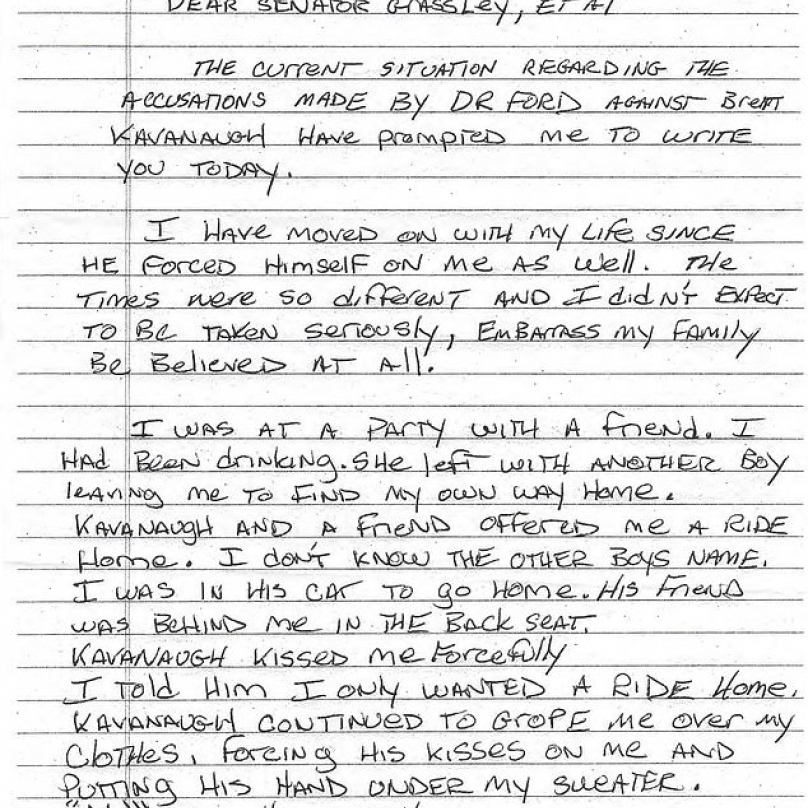 DEAR SENATOR GRASSLEY, ET Al
THE CURRENT SITUATION REGARDING THE
ACCUSATIONS MADE BY DR FORD AGAINST Brett
KAVANAUGH HAVE prompted me TO WRITE
YOU TODAY.
I HAVE MOVED ON WITH MY LIFE SINCE
HE FORCED HIMSELF ON ME AS Well. THE
Times were so different AND I didN'T EXPECT
TO BE TAKEN seriously, EMBARRASS my FAMILY
BE Believed AT All.
I WAS AT A PARTY WITH A friend. I
HAD BEEN drinking. SHE left WITH ANOTHER BOY
leaving me TO FIND MY OWN WAY Home.
KAVANAUGH AND A FRIEND OFFERED me A RIDE
Home. I DON'T KNOW THE OTHER BOYS NAME.
I WAS IN HIS CAR TO go HOME. HIS Friend
WAS BEHIND me IN THE BACK SEAT.
KAVANAUGH KISSED me Forcefully
I TOLD HIM I ONLY WANTED A RIDE Home.
KAVANAUGH CONTINUED TO GROPE me over my
CloTHES, Forcing HIS KISSES ON ME AND
PUTTING HIS HAND UNDER MY SWEATER.